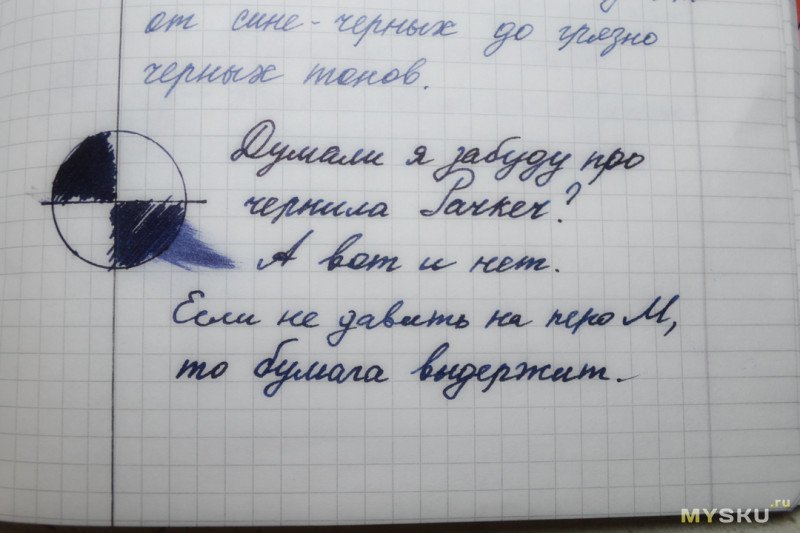 от сине-черных до грязно
черных тонов.
Думали я забуду про
чернила Рачкеч?
А вот и нет.
Если не давить на перо М,
то бумага выдержит.
MYSKU.ru